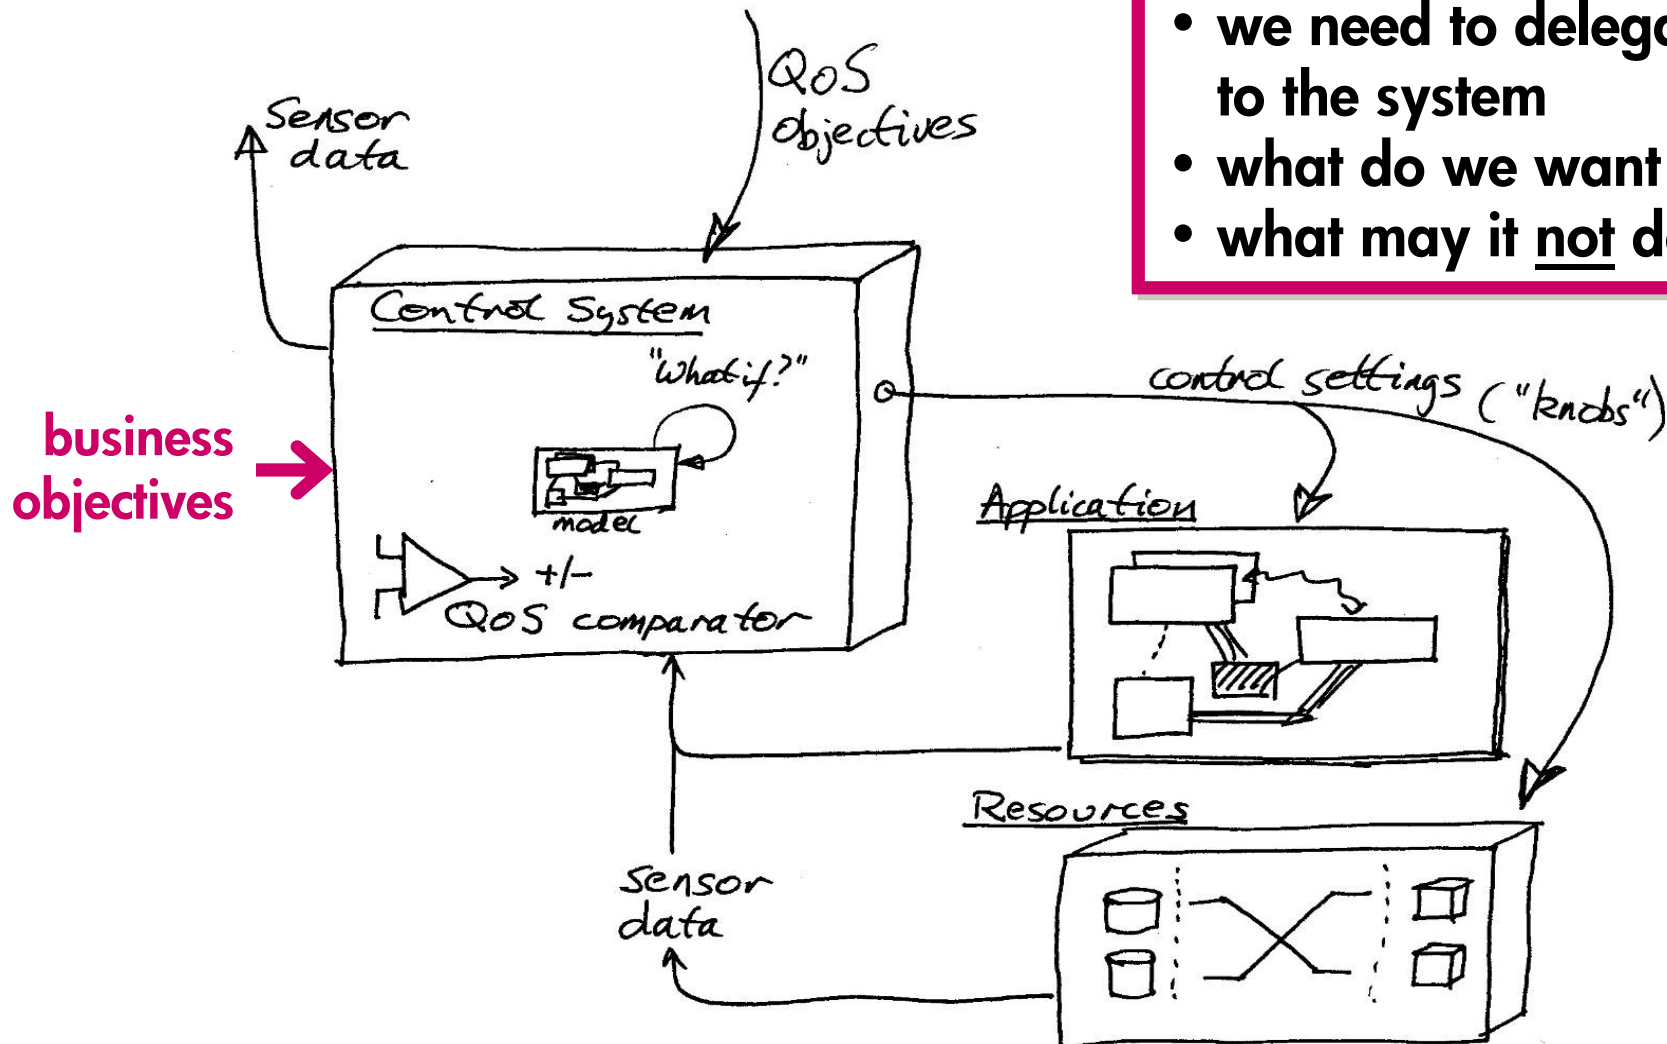 • we need to delega
to the system
• what do we want
• what may it not d
QoS
objectives
Sensor
data
Control System
"What if?"
model
+/-
QoS comparator
business
objectives
control settings ("knobs")
Application
Resources
sensor
data